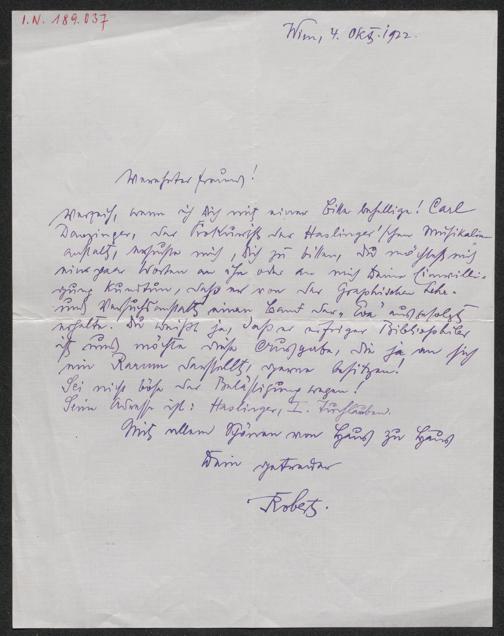 I.N. 189.037
Wien, 4. Okt. 1922.
Verehrter Freund!
Verzeih, wenn ich Dich mit einer Bitte behellige! Carl
Danzinger, der Prokurist der Haslinger'schen Musikalien
anstalt, ersuchte mich, Dich zu bitten, Du möchtest mit
ein paar Worten an ihn oder an mich Deine Einwilli-
gung kundtun, daß er von der Graphischen Lehr-
und Versuchsanstalt einen Band der „Eva" ausgefolgt
erhalte. Du weißt ja, daß er eifriger Bibliophiler
ist und möchte diese Ausgabe, die ja an sich
ein Rarum darstellt, gerne besitzen!
Sei nicht böse der Belästigung wegen!
Seine Adresse ist: Haslinger, I. Tuchlauben.
Mit allem Schönen von Haus zu Haus
Dein getreuer
Robert.